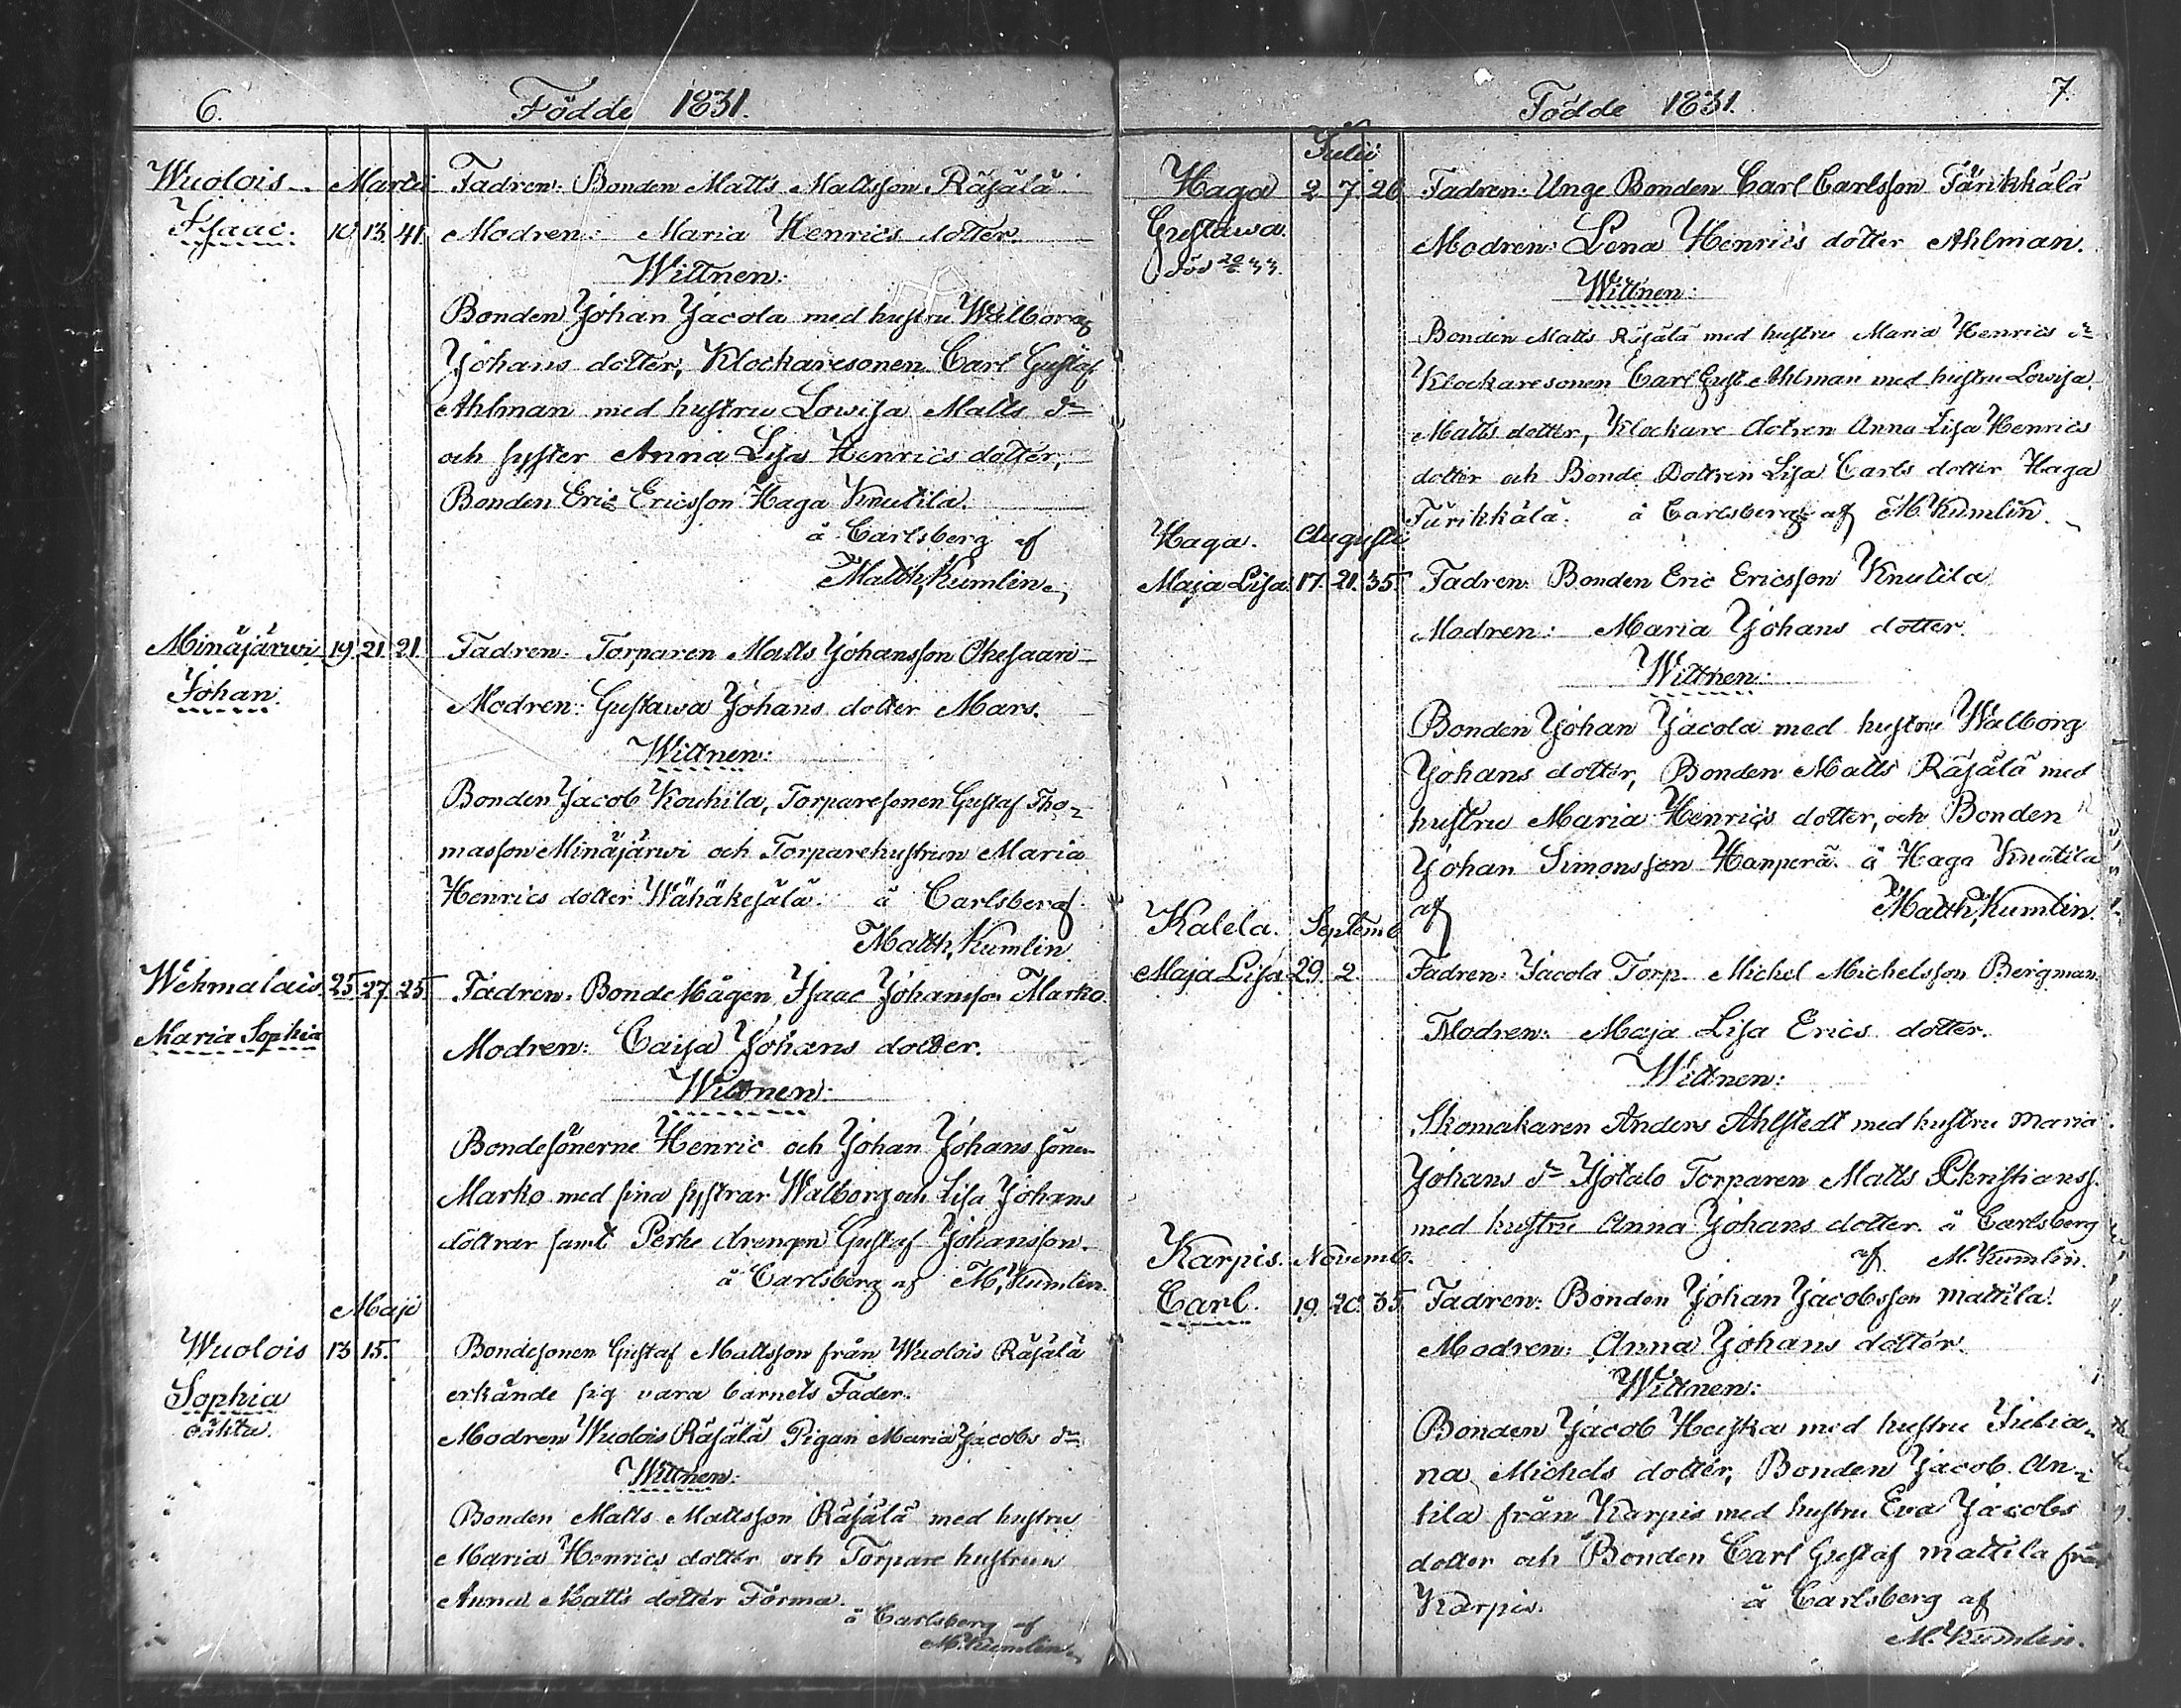 6. Födde 1831.
Wuolois Martii Fadren: Bonden Matts Mattsson Räsälä
Isaac. 10. 13. 41. Modren: Maria Henrics dotter.
Wittnen:
Bonden Johan Jacola med hustru Walborg
Johans dotter, Klockaresonen Carl Gustaf
Ahlman med hustru Lowisa Matts dr
och syster Anna Lisa Henrics dotter,
Bonden Eric Ericsson Haga Knutila.
å Carlsberg af
Matth, Kumlin.
Minäjärwi 19. 21. 21. Fadren: Torparen Matts Johansson Okesaari
Johan. Modren: Gustawa Johans dotter Mars.
Wittnen:
Bonden Jacob Kouhila, Torparesonen Gustaf Tho-
masson Minäjärwi och Torparehustrun Maria
Henrics dotter Wähäkesälä. å Carlsberg af
Matth, Kumlin.
Wehmalais 25. 27. 25. Fadren: Bonde Mågen Isaac Johansson Marko.
Maria Sophia Modren: Caisa Johans dotter.
Wittnen:
Bondesönerne Henric och Johan Johans söner
Marko med sina systrar Walborg och Lisa Johans
döttrar samt Perhe drengen Gustaf Johansson.
å Carlsberg af M, Kumlin.
Maji
Wuolois 13 15. Bondesonen Gustaf Mattsson från Wuolois Räsälä
Sophia erkände sig vara barnets Fader.
oäkta. Modren Wuolois Räsälä Pigan Maria Jacobs dr
Wittnen:
Bonden Matts Mattsson Räsälä med hustru
Maria Henrics dotter och Torpare hustrun
Anna Matts dotter Forma.
å Carlsberg af
M. Kumlin.
Födde 1831. 7.
Julii
Haga 2 7. 26 Fadren: Unge Bonden Carl Carlsson Tärikkälä
Gustawa. Modren: Lena Henrics dotter Ahlman.
död 33. Wittnen:
Bonden Matts Räsälä med hustru Maria Henrics dr
Klockaresonen Carl Gust. Ahlman med hustru Lowisa
Matts dotter, Klockare dotren Anna Lisa Henrics
dotter och Bonde Dottren Lisa Carls dotter Haga
Tärikkälä. å Carlsberg af M. Kumlin.
Haga. Augusti
Maja Lisa 17. 21. 35. Fadren: Bonden Eric Ericsson Knutila
Modren: Maria Johans dotter.
Wittnen:
Bonden Johan Jacola med hustru Walborg
Johans dotter, Bonden Matts Räsälä med
hustru Maria Henrics dotter, och Bonden
Johan Simonsson Hanperä. å Haga Knutila
af Matth, Kumlin.
Kalela. Septemb
Maja Lisa 29. 2. Fadren: Jacola Torp. Michel Michelsson Bergman.
Modren: Maja Lisa Erics dotter.
Wittnen:
Skomakaren Anders Ahlstedt med hustru Maria
Johans dr Isotalo Torparen Matts Christianss.
med hustru Anna Johans dotter. å Carlsberg
af M. Kumlin.
Karpis. Novemb.
Carl. 19. 20. 35. Fadren: Bonden Johan Jacobsson Mattila.
Modren: Anna Johans dotter.
Wittnen:
Bonden Jacob Hauska med hustru Julia-
na Michels dotter, Bonden Jacob An-
tila från Karpis med hustru Eva Jacobs
dotter och Bonden Carl Gustaf Mattila från
Karpis. å Carlsberg af
M. Kumlin.